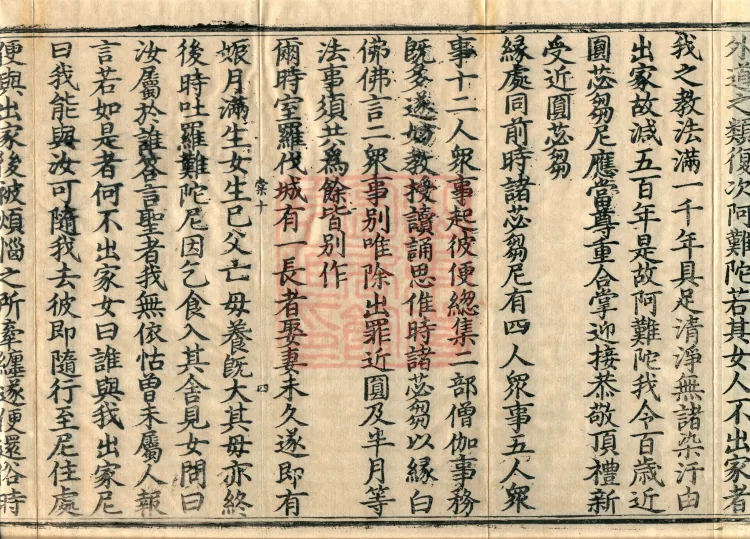 外道之類復次阿難陀若其女人不出家者
我之教法滿一千年具足清淨無諸染汙由
出家故減五百年是故阿難陀我令百歲近
圓苾芻尼應當尊重合掌迎接恭敬頂禮新
受近圓苾芻
緣處同前時諸苾芻尼有四人衆事五人衆
事十二人衆事起彼便緫集二部僧伽事務
旣多遂妨教授讀誦思惟時諸苾芻以緣白
佛佛言二衆事別唯除出罪近圓及半月等
法事須共為餘皆別作
爾時室羅伐城有一長者娶妻未久遂即有
娠月滿生女生已父亡母養旣大其母亦終
後時吐羅難陀尼因乞食入其舍見女問曰
汝屬於誰答言聖者我無依怙曽未屬人報
言若如是者何不出家女曰誰與我出家尼
曰我能與汝可隨我去彼即隨行至尼住處
便與出家後被煩惱之所牽纏遂便還俗時